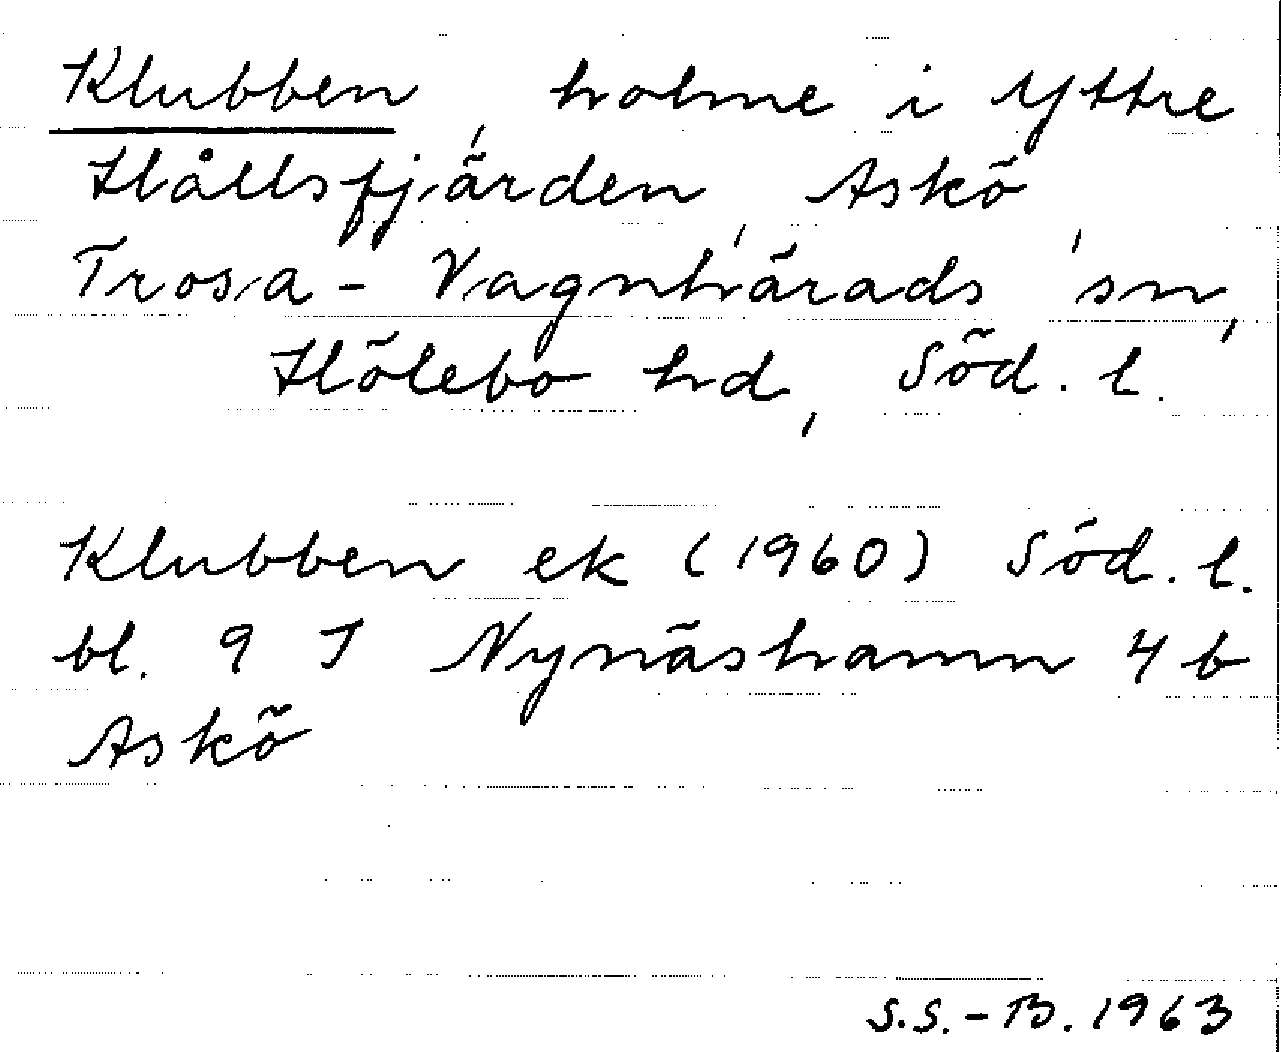 Klubben, holme i Yttre
Hållsfjärden, Askö,
Trosa-Vagnhärads sn,
Hölebo hd, Söd. l.
Klubben ek (1960) Söd. l.
bl. 9 I Nynäshamn 4 b
Askö
S.S.-B. 1963